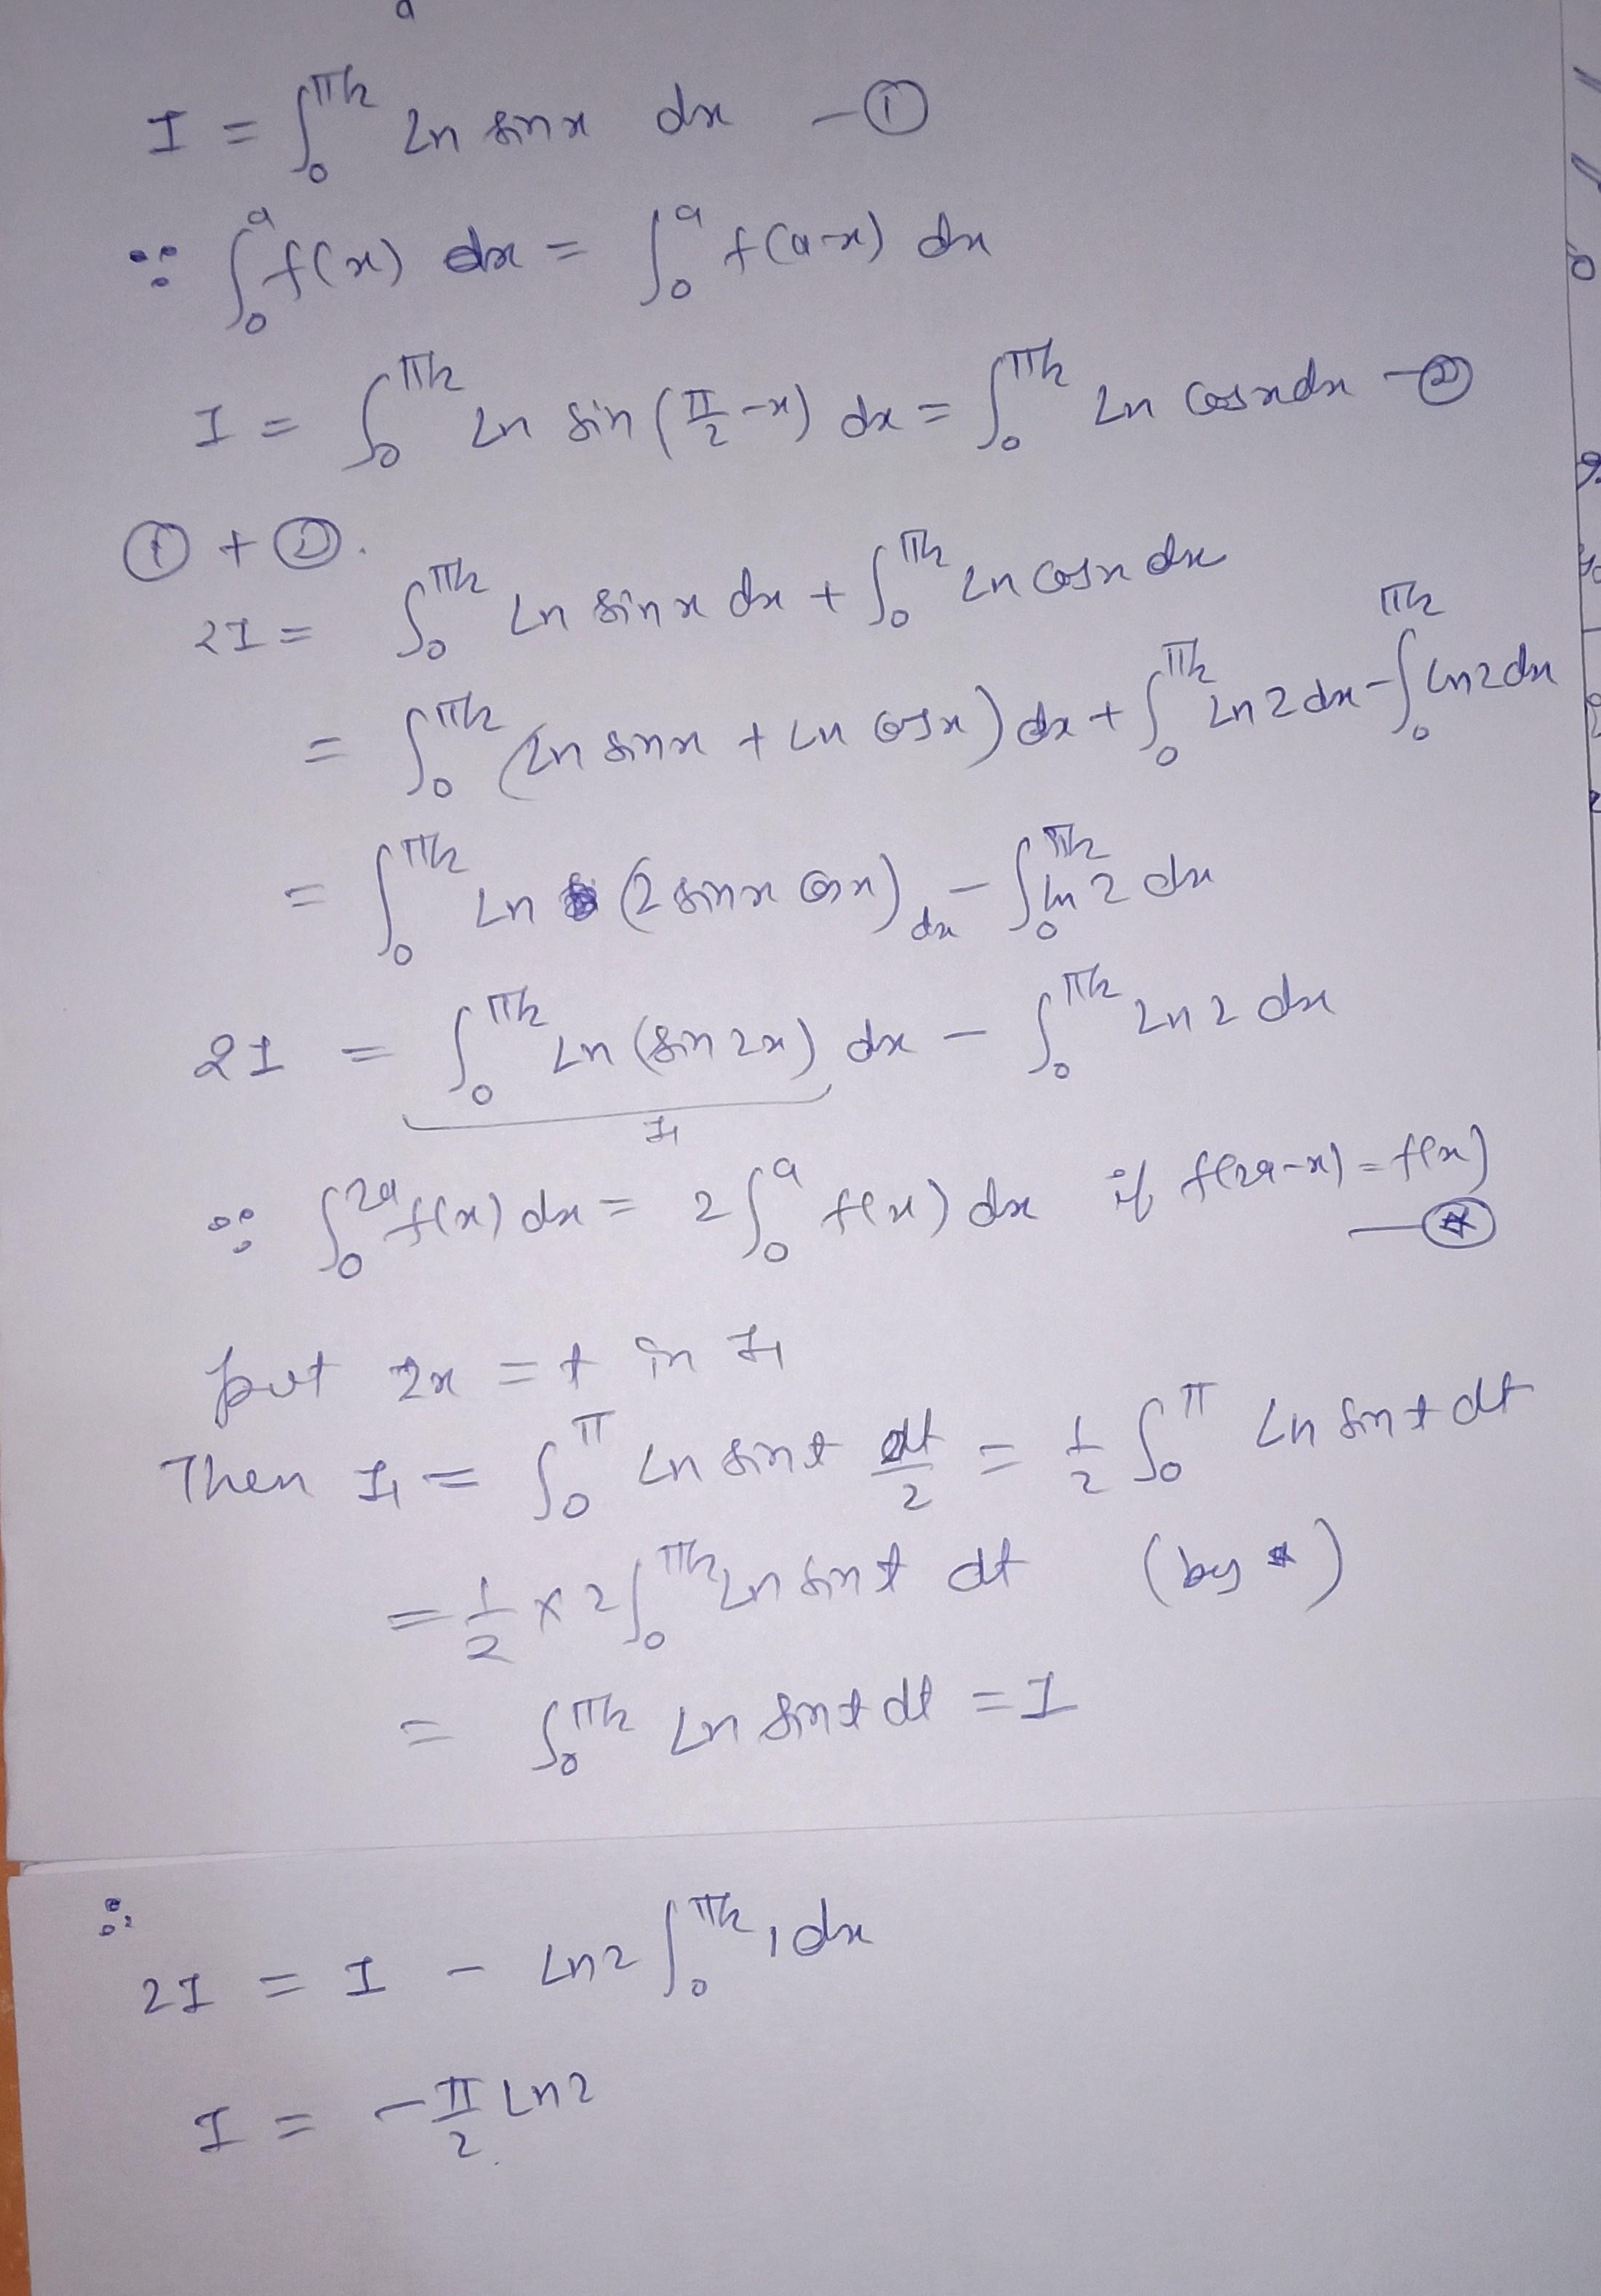 I = ∫₀^{π/2} ln sinx dx –①
∵ ∫₀^a f(x) dx = ∫₀^a f(a-x) dx
I = ∫₀^{π/2} ln sin(π/2 -x) dx = ∫₀^{π/2} ln cosx dx –②
① + ②.
2I = ∫₀^{π/2} ln sinx dx + ∫₀^{π/2} ln cosx dx
= ∫₀^{π/2} (ln sinx + ln cosx) dx + ∫₀^{π/2} ln2 dx - ∫₀^{π/2} ln2 dx
= ∫₀^{π/2} ln (2 sinx cosx) dx – ∫₀^{π/2} ln 2 dx
2I = ∫₀^{π/2} ln (sin 2x) dx – ∫₀^{π/2} ln 2 dx
I₁
∵ ∫₀^{2a} f(x) dx = 2∫₀^a f(x) dx if f(2a-x) = f(x)
—(*)
put 2x = t in I₁
Then I₁ = ∫₀^π ln sint dt/2 = 1/2 ∫₀^π ln sint dt
= 1/2 × 2∫₀^{π/2} ln sint dt (by *)
= ∫₀^{π/2} ln sint dt = I
∴
2I = I – ln2 ∫₀^{π/2} 1 dx
I = -π/2 ln2